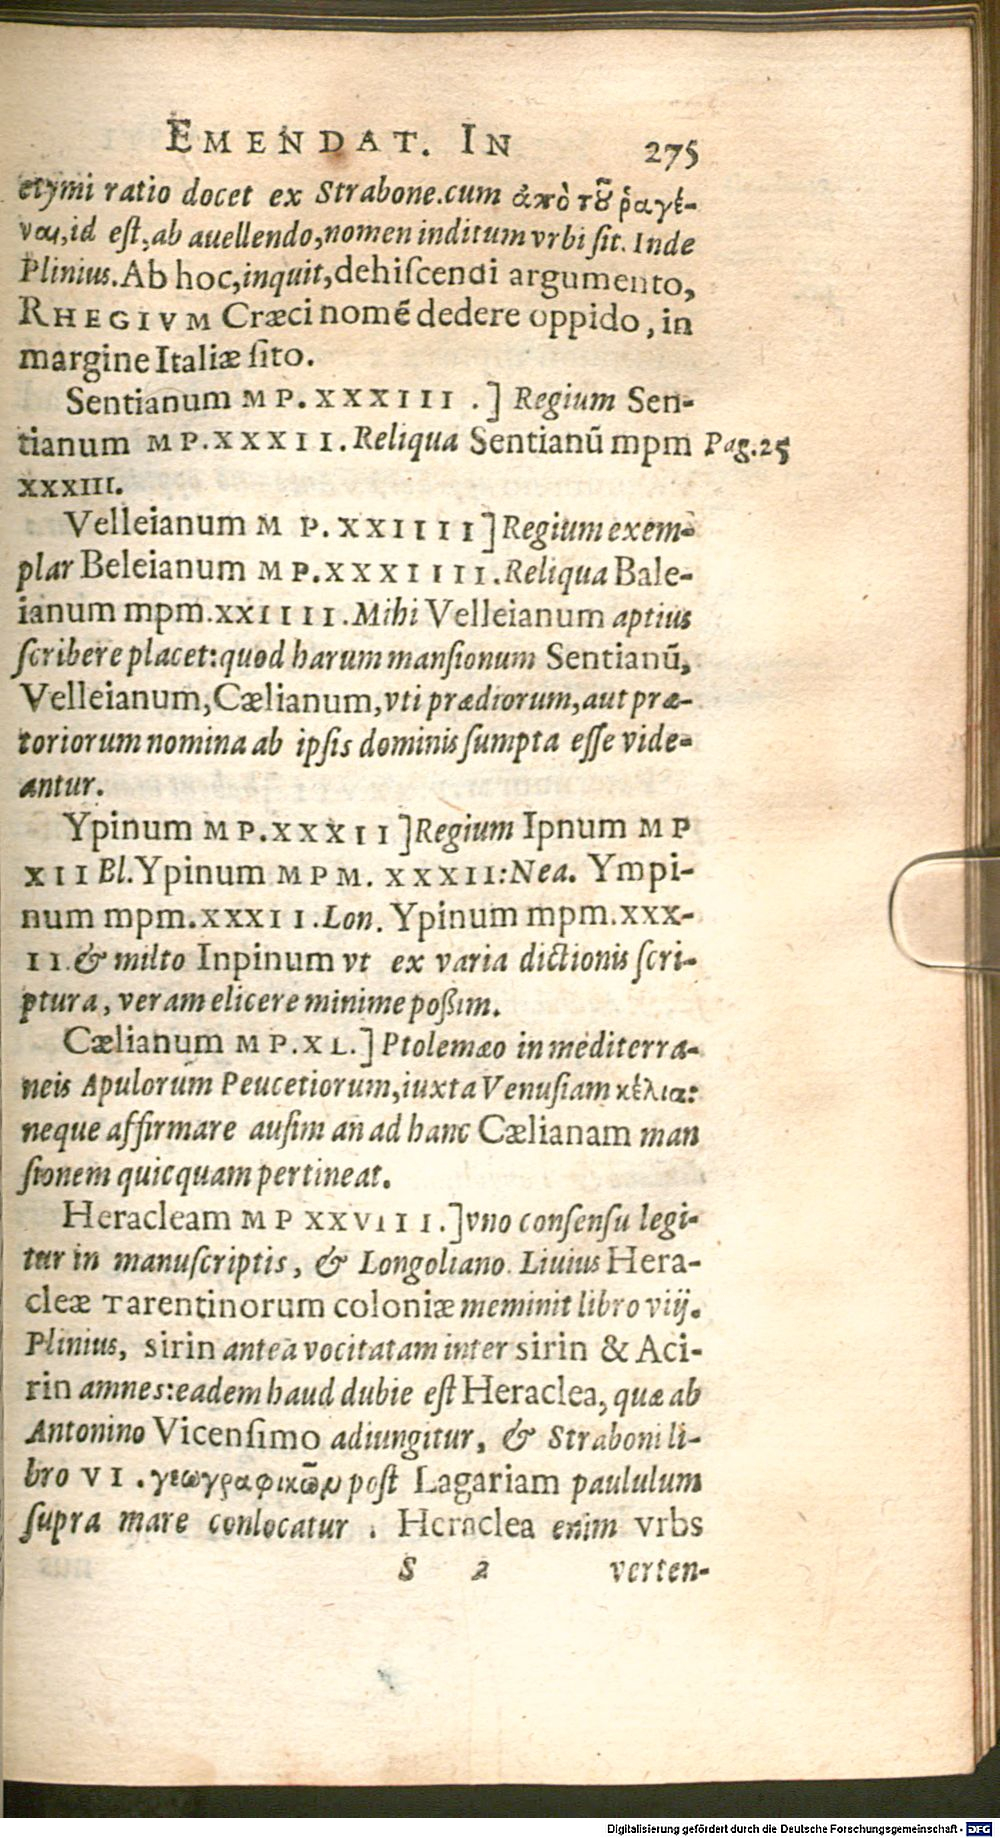 EMENDAT. IN 275
etymi ratio docet ex Strabone.cum ἀπὸ τοῦ ῥαγέ-
ναι,id eſt,ab auellendo,nomen inditum vrbi ſit. Inde
Plinius.Ab hoc,inquit,dehiſcendi argumento,
RHEGIVM Cræci nomē dedere oppido, in
margine Italiæ ſito.
Sentianum MP.XXXIII .] Regium Sen-
tianum MP.XXXII.Reliqua Sentianū mpm Pag.25
XXXIII.
Velleianum M P.XXIIII]Regium exem-
plar Beleianum MP.XXXIIII.Reliqua Bale-
ianum mpm.XXIIII.Mihi Velleianum aptius
ſcribere placet:quod harum manſionum Sentianū,
Velleianum,Cælianum,vti prædiorum,aut præ-
toriorum nomina ab ipſis dominis ſumpta eſſe vide-
antur.
Ypinum MP.XXXII]Regium Ipnum MP
XII Bl.Ypinum MPM. XXXII:Nea. Ympi-
num mpm.XXXII.Lon. Ypinum mpm.XXX-
II.& milto Inpinum vt ex varia dictionis ſcri-
ptura, veram elicere minime poßim.
Cælianum MP.XL.] Ptolemæo in mediterra-
neis Apulorum Peucetiorum,iuxta Venuſiam κέλια:
neque affirmare auſim an ad hanc Cælianam man
ſionem quicquam pertineat.
Heracleam MP XXVIII.]vno conſenſu legi-
tur in manuſcriptis, & Longoliano. Liuius Hera-
cleæ Tarentinorum coloniæ meminit libro viij.
Plinius, sirin antea vocitatam inter sirin & Aci-
rin amnes:eadem haud dubie eſt Heraclea, quæ ab
Antonino Vicenſimo adiungitur, & Straboni li-
bro VI .γεωγραφικῶν poſt Lagariam paululum
ſupra mare conlocatur . Heraclea enim vrbs
S 2 verten-
Digitalisierung gefördert durch die Deutsche Forschungsgemeinschaft - DFG